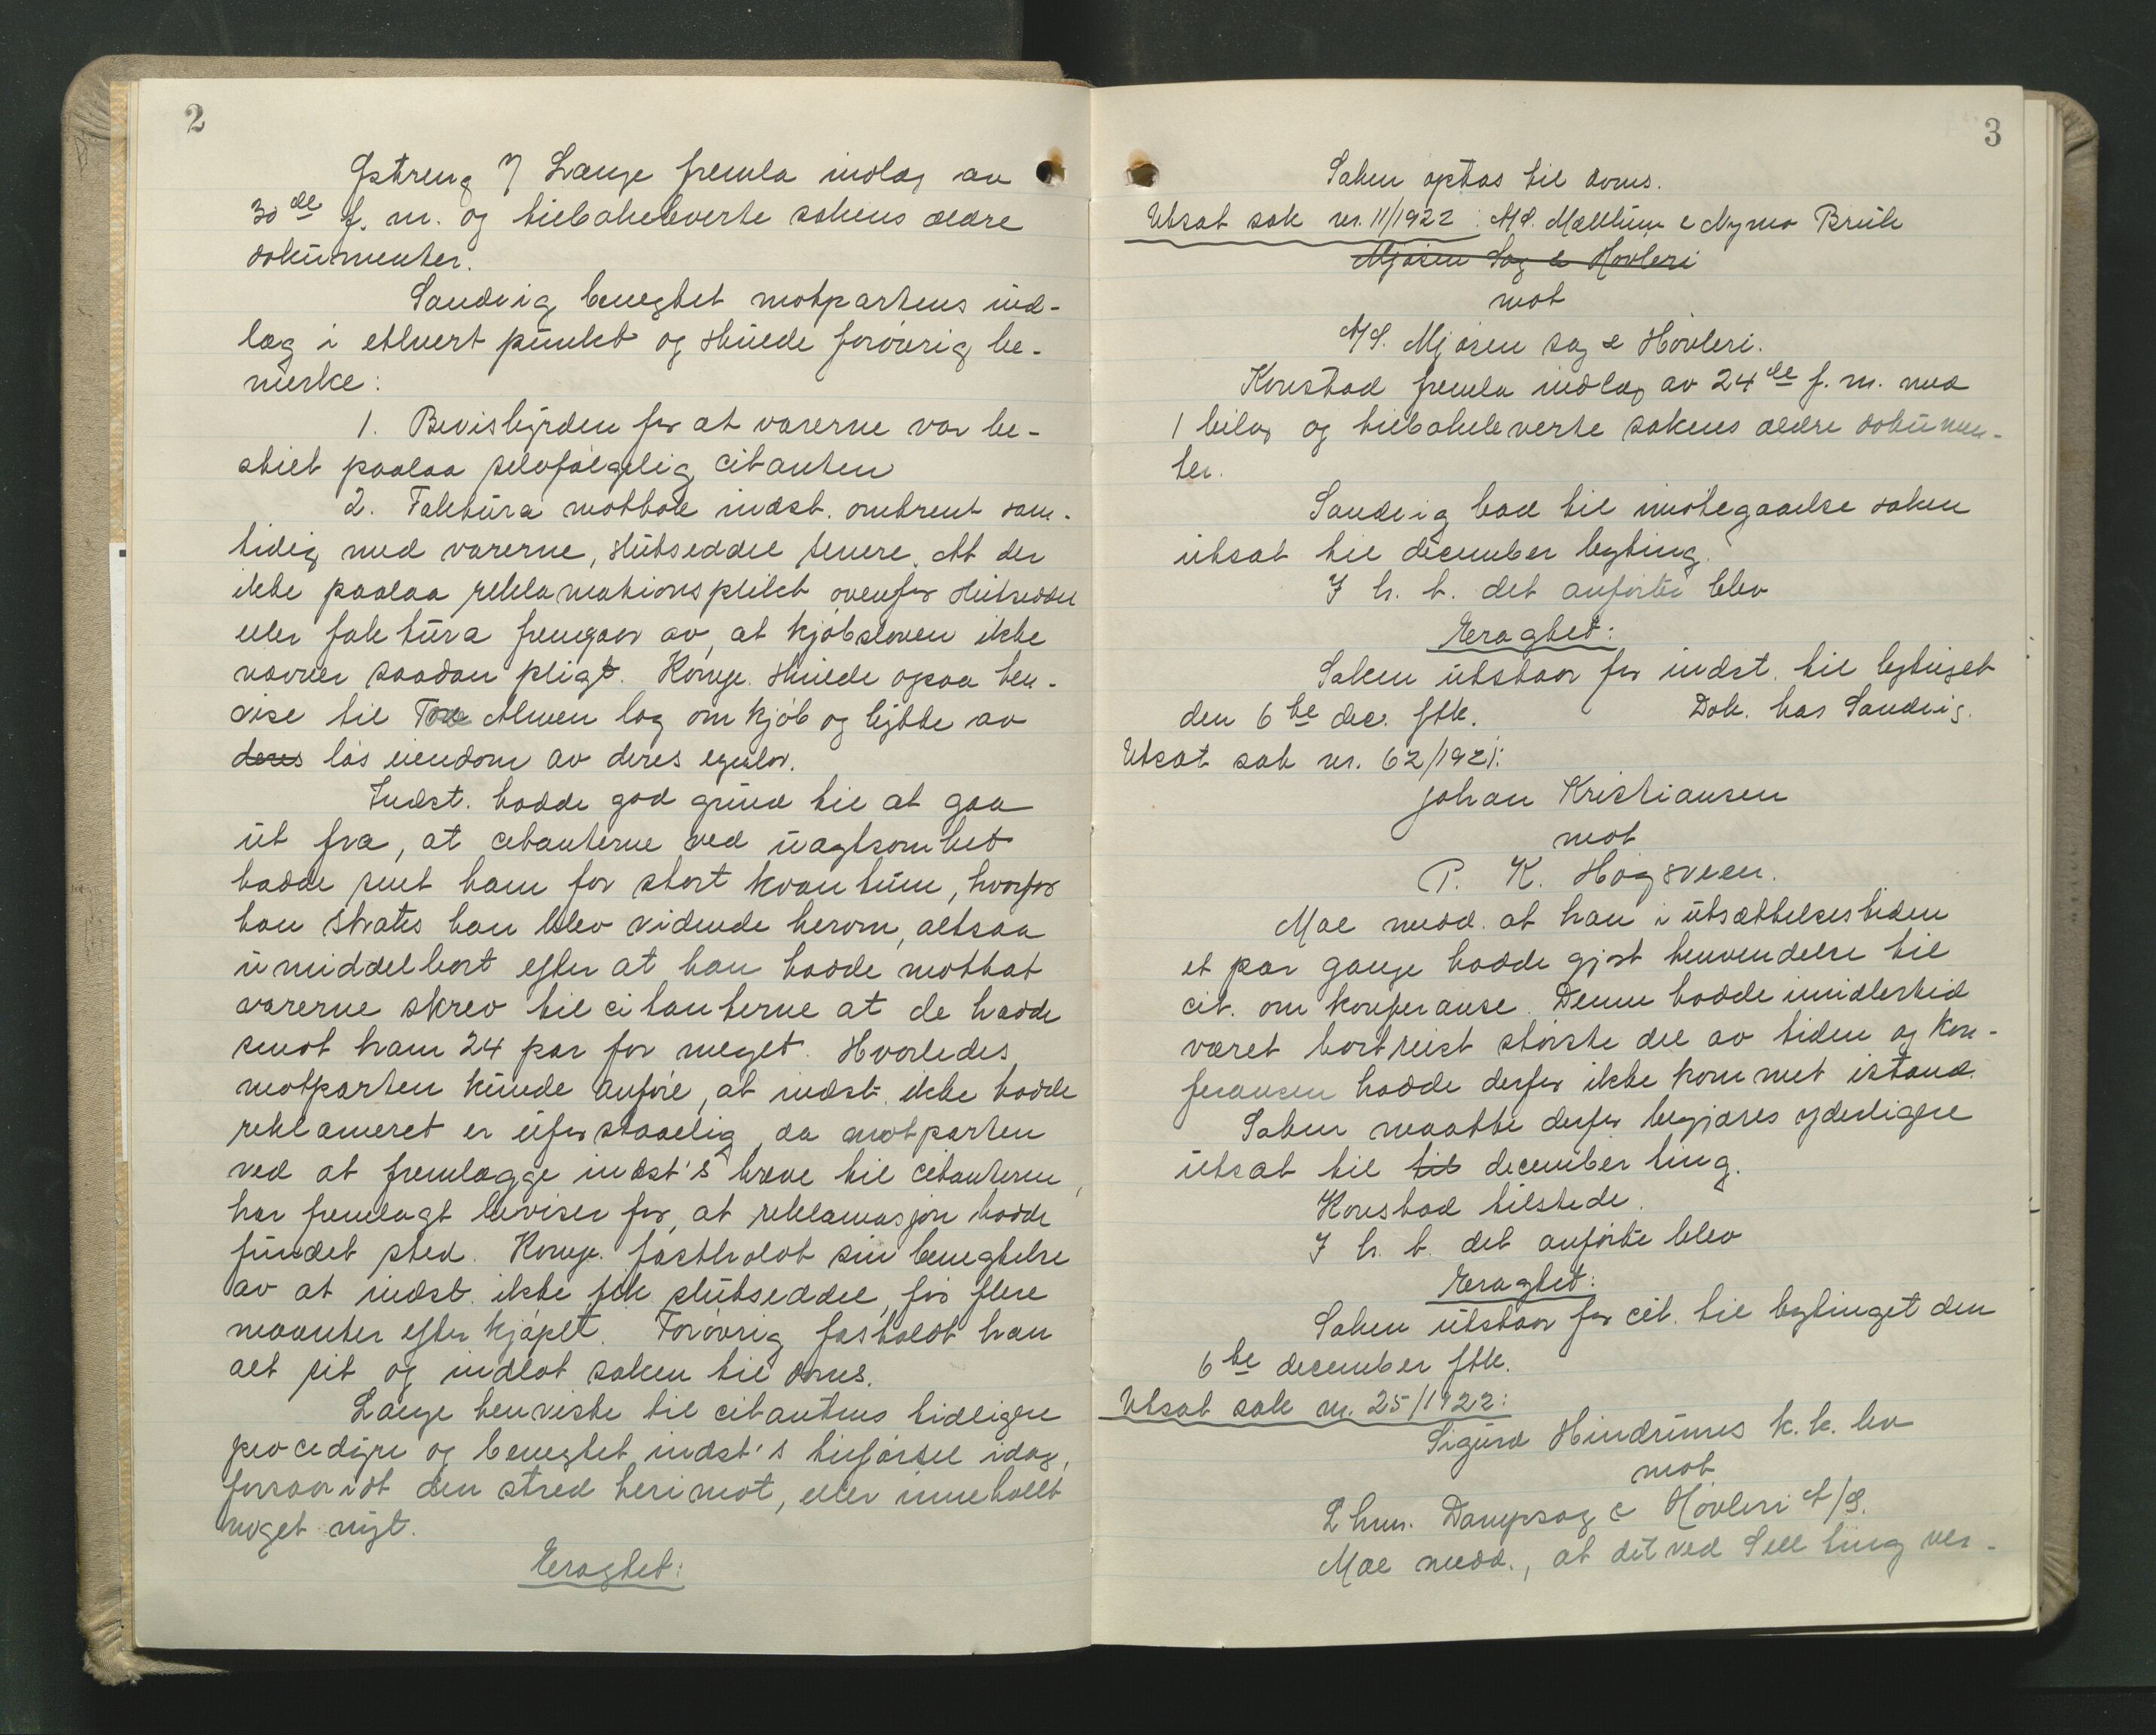 2
Østreng f Lange fremla indlæg av
30de f. m. og tilbakeleverte sakens ældre
dokumenter.
Sandvig benegtet motpartens ind-
læg i ethvert punkt og skulde forøvrig be-
merke:
1. Bevisbyrden for at varerne var be-
stilt paalaa selvfølgelig citanten
2. Faktura mottok indst. omtrent sam-
tidig med varerne, slutseddel senere. At der
ikke paalaa reklamationsplikt ovenfor slutseddel
eller faktura fremgaar av, at kjøbsloven ikke
nævner saadan pligt. Komp. skulde ogsaa hen-
vise til Tore Almen lag om kjöb og bytte av
deres lös eiendom av deres
Indst. hadde god grund til at gaa
ut fra, at citanterne ved uagtsomhet
hadde sent ham for stort kvantum, hvorfor
han straks han blev vidende herom, altsaa
umiddelbart efter at han hadde mottat
varerne skrev til citanterne at de hadde
sendt ham 24 par for meget. Hvorledes
motparten kunde anføre, at indst. ikke hadde
reklameret er uforstaaelig, da motparten
ved at fremlægge indst's breve til citanterne,
har fremlagt beviser for, at reklamasjon hadde
fundet sted. Komp. fastholdt sin benegtelse
av at indst. ikke fik slutseddel, før flere
maaneter efter kjøpet. Forøvrig fasholdt han
alt sit og indlot saken til doms.
Lange henviste til citantens tidligere
procedyre og benegtet indst's tilførsel idag,
forsaavidt den stred herimot, eller inneholdt
noget nyt.
Eragtet:
3
Saken optas til doms.
Utsat sak nr. 11/1922: A/S. Mællum & Nymo Bruk
Mjøsen Sag & Høvleri
mot
A/S. Mjøsen sag & Høvleri.
Konstad fremla indlæg av 24de f. m. med
1 bilag og tilbakeleverte sakens ældre dokumen-
ter.
Sandvig bad til imøtegaaelse saken
utsat til december bygting.
I h. t. det anførte blev
Eragtet:
Saken utstaar for indst. til bytinget
den 6te dec. fstk. Dok. hos Sandvig.
Utsat sak nr. 62/1921:
Johan Kristiansen
mot
P. K. Høgsveen.
Moe medd. at han i utsættelsestiden
et par gange hadde gjort henvendelse til
cit. om konferanse. Denne hadde imidlertid
været bortreist største del av tiden og kon-
feransen hadde derfor ikke kommet istand.
Saken maatte derfor begjæres yderligere
utsat til til december ting.
Konstad tilstede.
I h. t. det anførte blev
Eragtet:
Saken utstaar for cit. til bytinget den
6te december fstk.
Utsat sak nr. 25/1922:
Sigurd Hindrums k. k. bo
mot
Lhmr. Dampsag & Høvleri A/S.
Moe medd., at det ved Sell ting ver-